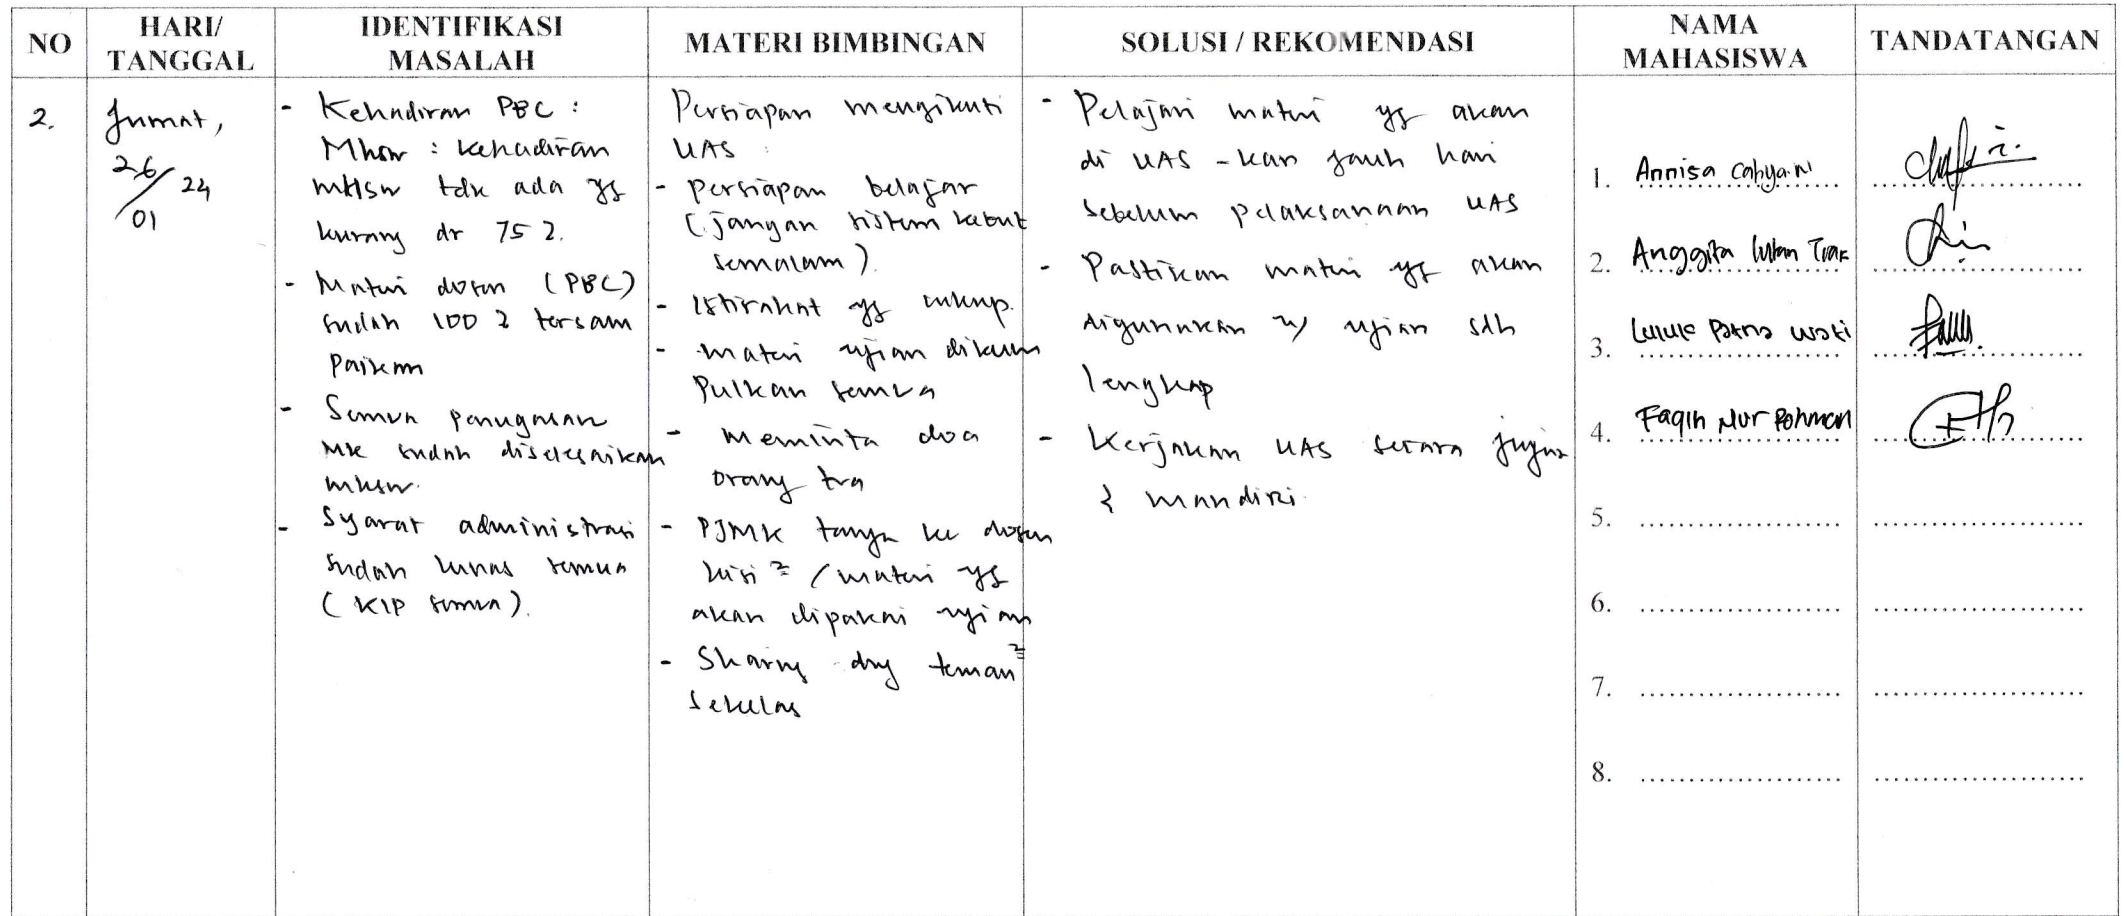 NO
HARI/
TANGGAL
IDENTIFIKASI
MASALAH
MATERI BIMBINGAN
SOLUSI / REKOMENDASI
NAMA
MAHASISWA
TANDATANGAN
2.
Jumat,
26/01 24
- Kehadiran PBC :
Mhsw : kehadiran
mhsw tdk ada yg
kurang dr 75 %.
- Materi dosen (PBC)
sudah 100 % tersam
paikan
- Semua penugasan
MK sudah diselesaikan
mhsw.
- Syarat administrasi
sudah lunas semua
( KIP semua ).
Persiapan mengikuti
UAS :
- persiapan belajar
(jangan sistem kebut
semalam ).
- Istirahat yg cukup.
- materi ujian dikum
pulkan semua
- meminta doa
orang tua
- PJMK tanya ke dosen
kisi ² / materi yg
akan dipakai ujian
- Sharing dng teman ²
sekelas
- Pelajari materi yg akan
di UAS - kan jauh hari
sebelum pelaksanaan UAS
- Pastikan materi yg akan
digunakan u/ ujian sdh
lengkap
- Kerjakan UAS secara jujur
& mandiri.
1. Annisa Cahyani
2. Anggita Intan
3. Luluk Ratna Wati
4. Faqih Nur Rohman
5.
6.
7.
8.